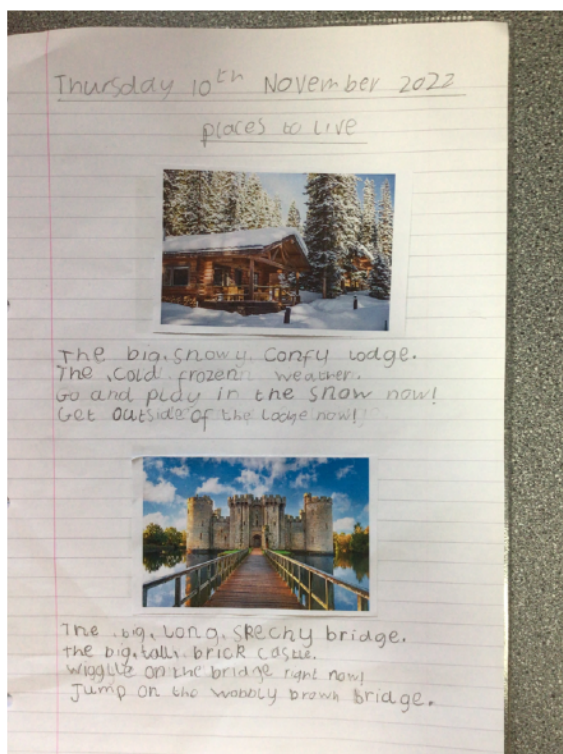 Thursday 10th November 2022
places to live
The big, snowy, Confy lodge.
The, cold, frozenn weather.
Go and play in the snow now!
Get outside of the Lodge now!
The, big, Long, skechy bridge.
the big, tall, brick castle.
wigglle on the bridge right now!
Jump on the wobbly brown bridge.